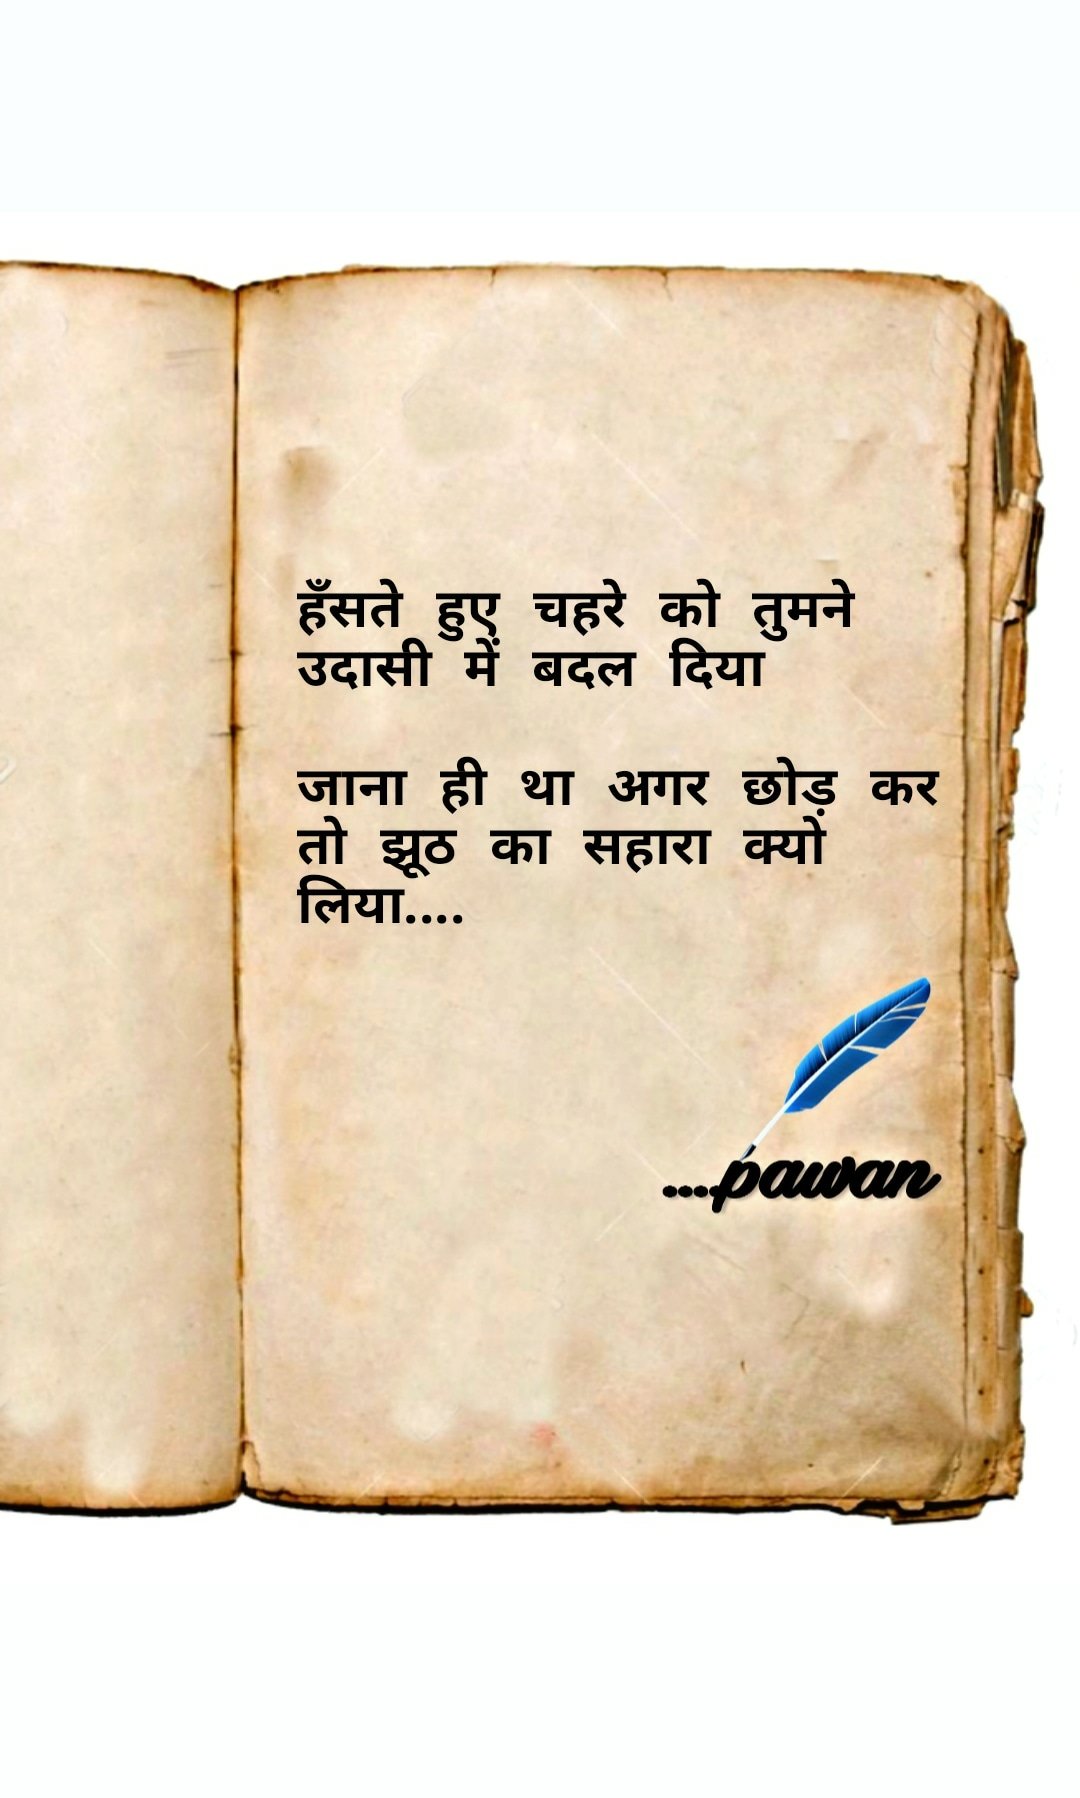 हँसते हुए चहरे को तुमने
उदासी में बदल दिया
जाना ही था अगर छोड़ कर
तो झूठ का सहारा क्यो
लिया....
....pawan